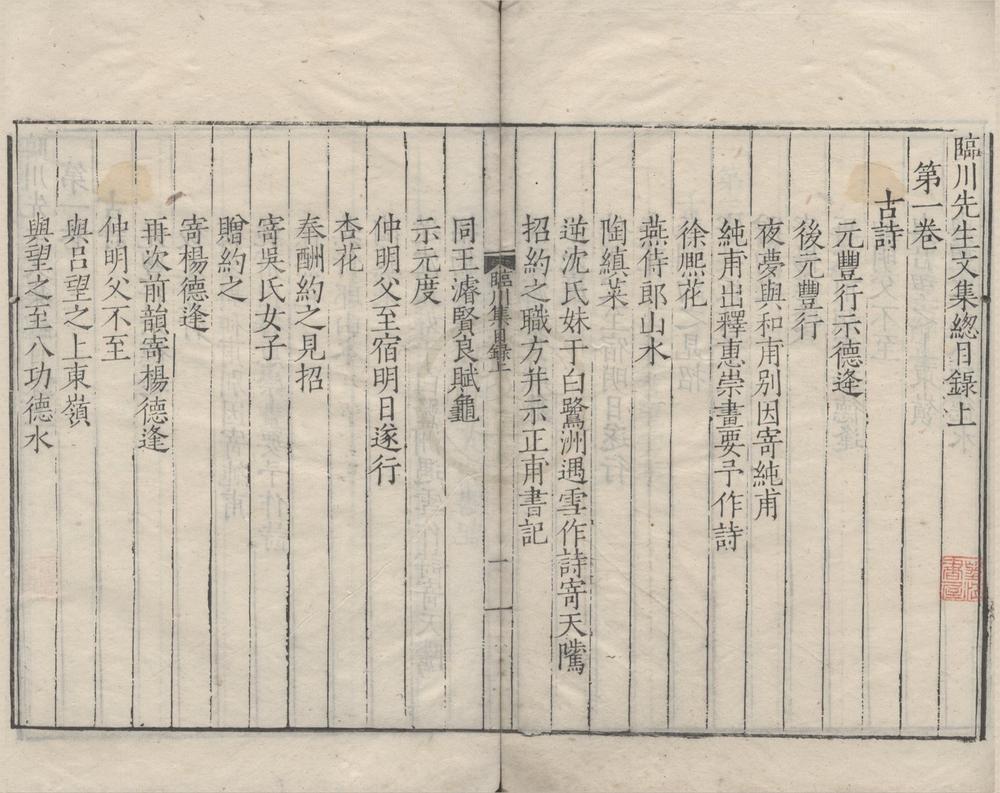 臨川先生文集緫目錄上
第一卷
古詩
元豐行示德逢
後元豐行
夜夢與和甫別因寄純甫
純甫出釋惠崇畫要予作詩
徐熈花
燕侍郎山水
陶縝菜
逆沈氏妹于白鷺洲遇雪作詩寄天隲
招約之職方并示正甫書記
臨川集目錄上
一
同王濬賢良賦龜
示元度
仲明父至宿明日遂行
杏花
奉酬約之見招
寄吳氏女子
贈約之
寄楊德逢
再次前韻寄楊德逢
仲明父不至
與呂望之上東嶺
與望之至八功德水